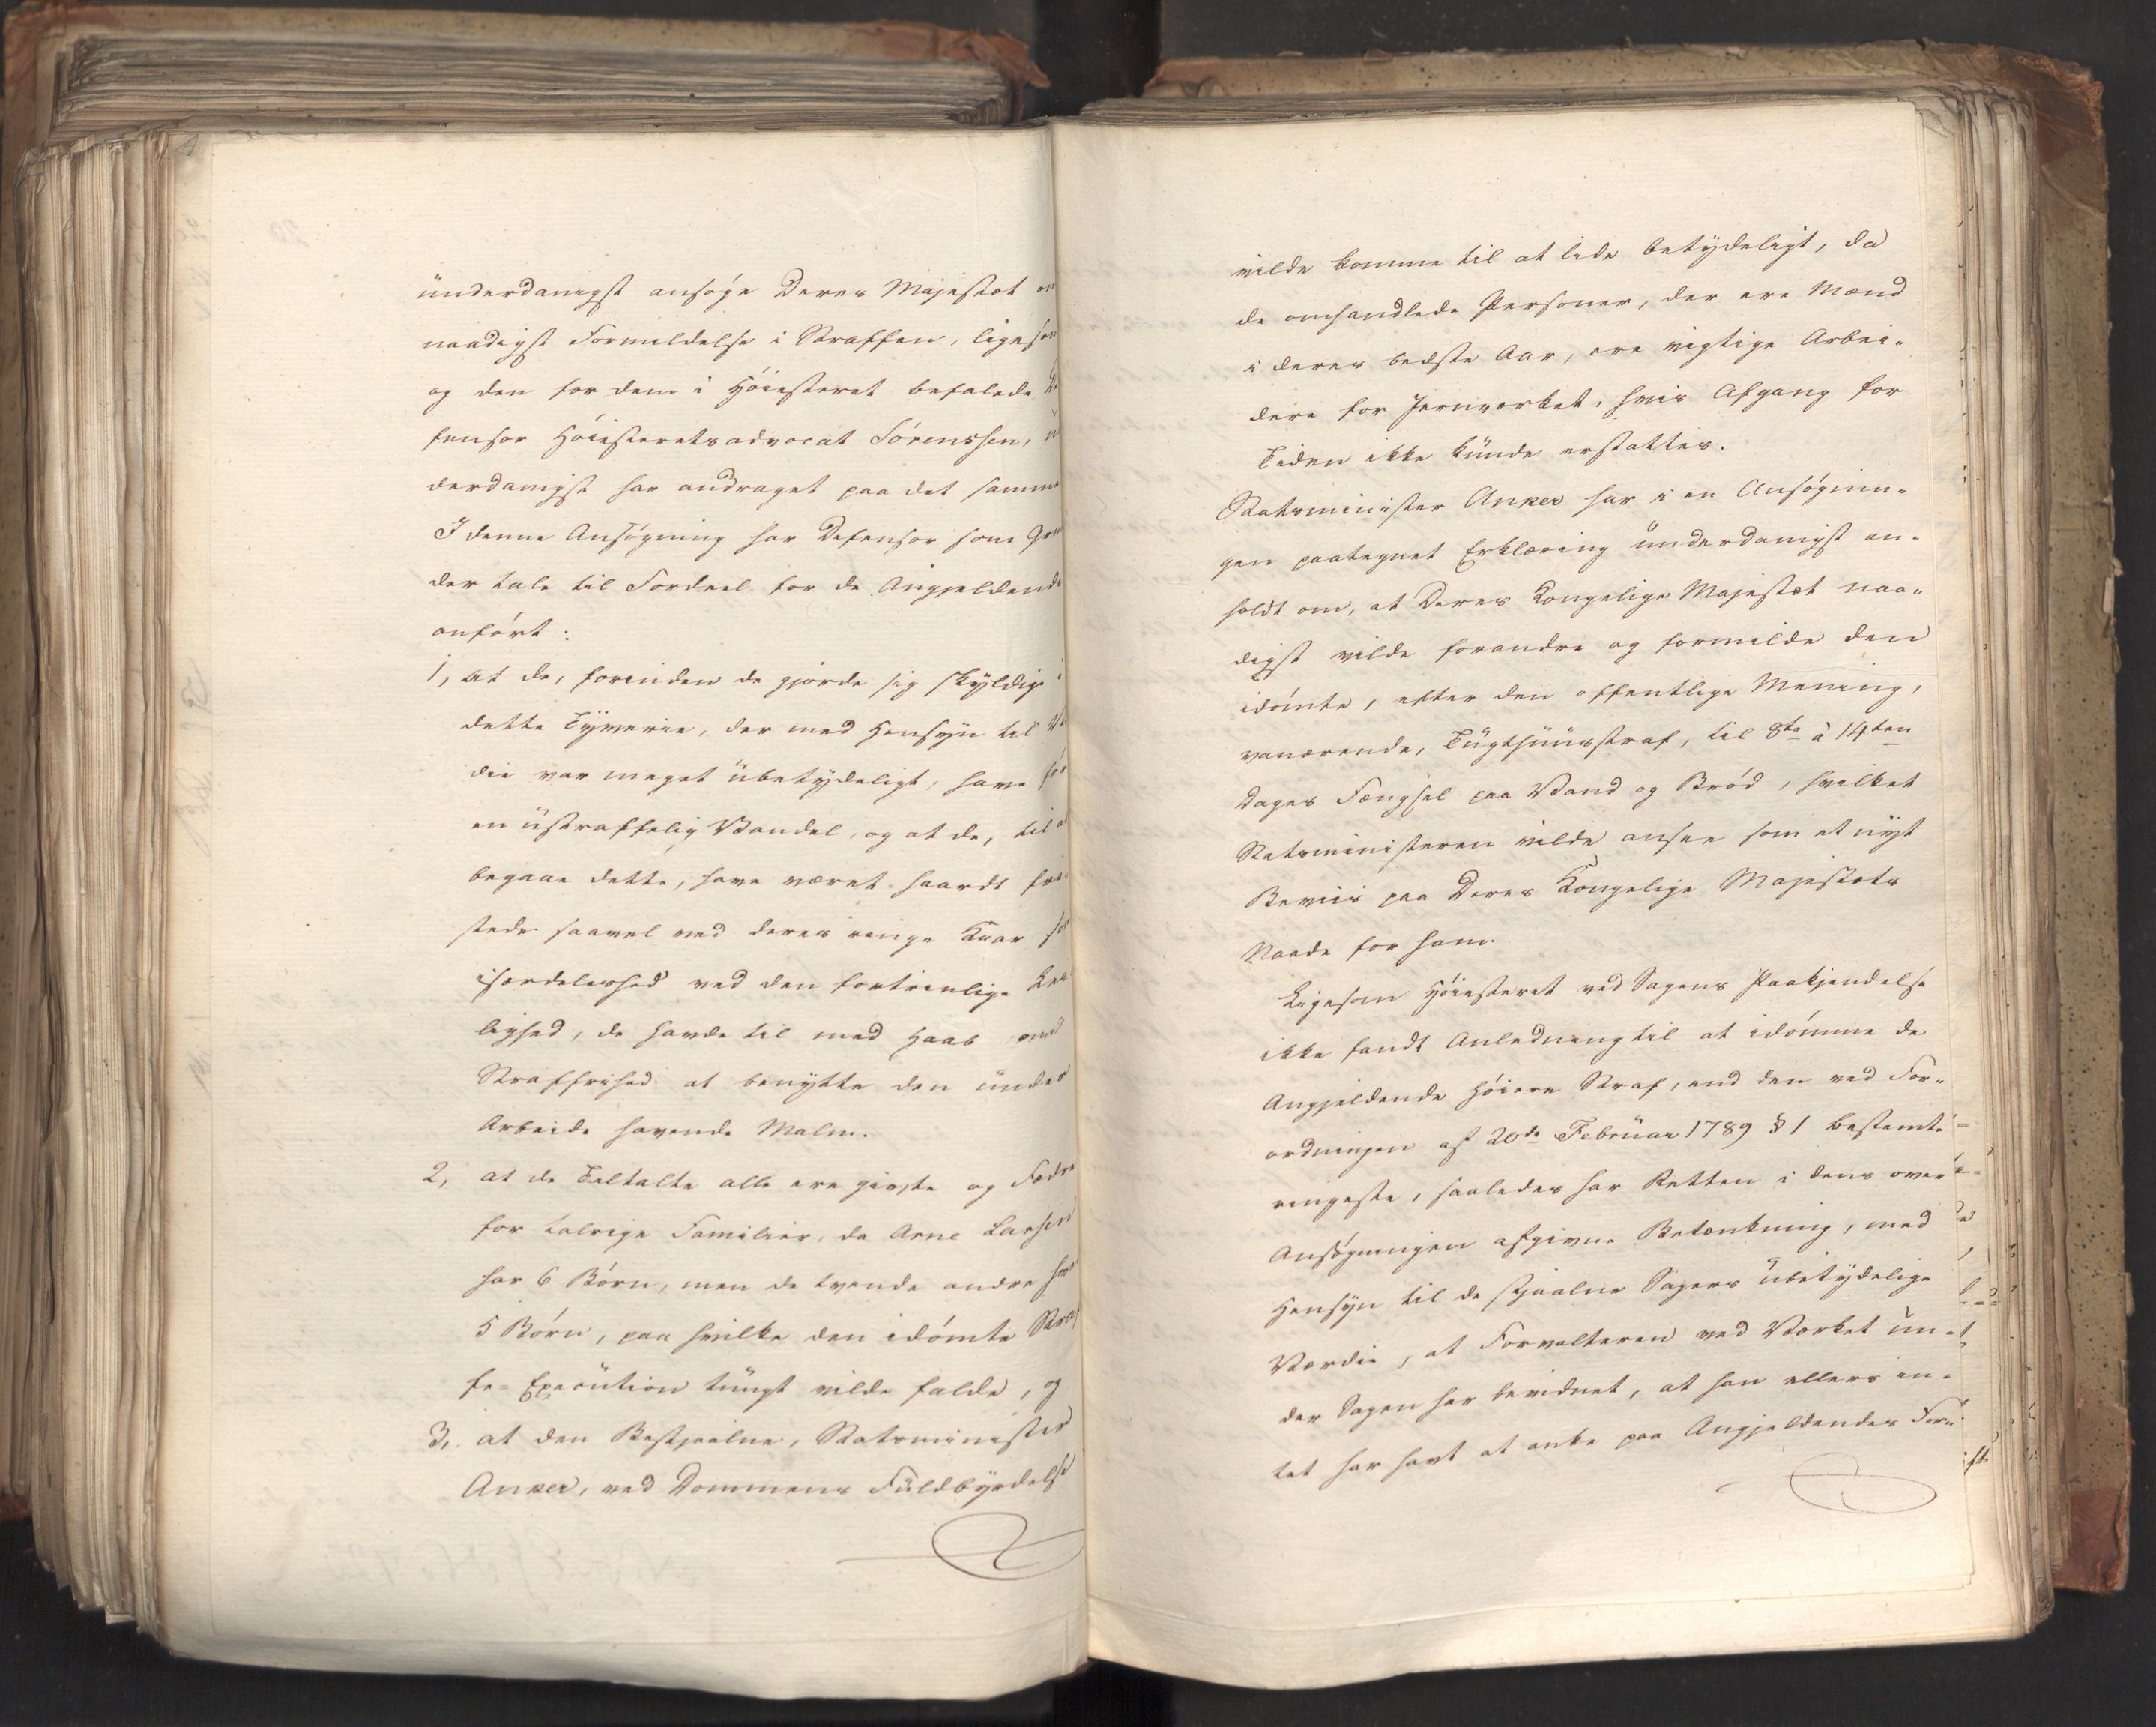 underdanigst ansøge Deres Majestæt om
naadigst Formildelse i Straffen, ligesom
og den for dem i Høiesteret befalede De
fensor Høiesteretsadvocat Sørenssen, un
derdanigst har andraget paa det samme
I denne Ansøgning har Defensor som Grun
der tale til Fordeel for de Angjeldende
anført:
1, at de, forinden de gjorde sig skyldige i
dette Tyverie, der med Hensyn til Vær
die var meget ubetydeligt, have før
en ustraffelig Vandel, og at de, til at
begaae dette, have været haardt fri
stede saavel ved deres ringe Kaar som
isærdeleshed ved den fortrinlige Lei
lighed, de havde til med Haab om
Straffrihed at benytte den under
Arbeide havende Malm.
2, at de Tiltalte alle ere givte og Fædre
for talrige Familier, da Arne Larsen
har 6 Børn, men de tvende andre hver
5 Børn, paa hvilke den idømte Straf
fe-Execution tungt vilde falde, og
3, at den Bestjaalne, Statsminister
Anker, ved Dommens Fuldbyrdelse
vilde komme til at lide betydeligt, da
de omhandlede Personer, der ere Mænd
i deres bedste Aar, ere vigtige Arbei-
dere for Jernværket, hvis Afgang for
Tiden ikke kunde erstattes.
Statsminister Anker har i en Ansøgnin-
gen paategnet Erklæring underdanigst an-
holdt om, at Deres Kongelige Majestæt naa-
digst vilde forandre og formilde den
idømte, efter den offentlige Mening,
vanærende, Tugthuusstraf, til 8te à 14ten
Dages Fængsel paa Vand og Brød, hvilket
Statsministeren vilde ansee som et nyt
Beviis paa Deres Kongelige Majestæts
Naade for ham.
Ligesom Høiesteret ved Sagens Paakjendelse
ikke fandt Anledning til at idømme de
Angjeldende høiere Straf, end den ved For-
ordningen af 20de Februar 1789 § 1 bestemte
ringeste, saaledes har Retten i dens over
Ansøgningen afgivne Betænkning, med
Hensyn til de stjaalne Sagers ubetydelige
Værdie, at Forvalteren ved Værket un-
der Sagen har bevidnet, at han ellers in-
tet har havt at anke paa Angjeldendes For-